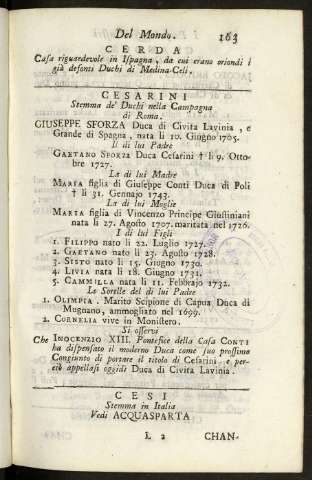 Del Mondo. 163
CERDA
Casa riguardevole in Ispagna, da cui erano oriondi i
già defonti Duchi di Medina-Celi.
CESARINI
Stemma de' Duchi nella Campagna
di Roma.
GIUSEPPE SFORZA Duca di Civita Lavinia, e
Grande di Spagna, nata li 10. Giugno 1705.
Il di lui Padre
GAETANO SFORZA Duca Cesarini † li 9. Otto-
bre 1727.
La di lui Madre
MARIA figlia di Giuseppe Conti Duca di Poli
† li 31. Gennajo 1743.
La di lui Moglie
MARIA figlia di Vincenzo Principe Giustiniani
nata li 27. Agosto 1707. maritata nel 1726.
I di lui Figli
1. FILIPPO nato li 22. Luglio 1727.
2. GAETANO nato li 23. Agosto 1728.
3. SISTO nato li 15. Giugno 1730.
4. LIVIA nata li 18. Giugno 1731.
5. CAMMILLA nata li 11. Febbrajo 1732.
Le Sorelle del di lui Padre
1. OLIMPIA. Marito Scipione di Capua Duca di
Mugnano, ammogliato nel 1699.
2. CORNELIA vive in Monistero.
Si osservi
Che INOCENZIO XIII. Pontefice della Casa CONTI
ha dispensato il moderno Duca come suo prossimo
Congiunto di portare il titolo di Cesarini, e per-
ciò appellasi oggidì Duca di Civita Lavinia.
CESI
Stemma in Italia
Vedi ACQUASPARTA
L 2 CHAN-